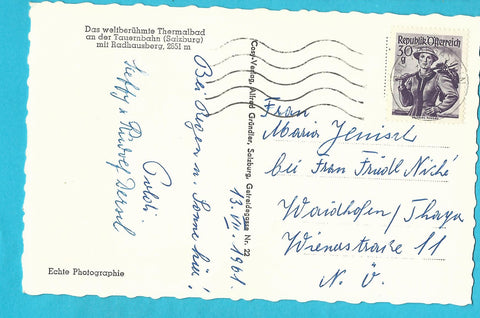 Das weltberühmte Thermalbad
an der Tauernbahn (Salzburg)
mit Radhausberg, 2651 m
Bei Regen u. Sonne hier!
13.VII.1961
Poldi
Steffy u Rudolf
Echte Photographie
Cosy-Verlag, Alfred Gründler, Salzburg, Getreidegasse Nr. 22
Republik Österreich
30
g
Frau
Maria Jenisch
bei Frau Friedl Niché
Waidhofen/Thaya
Wienerstraße 11
N.Ö.